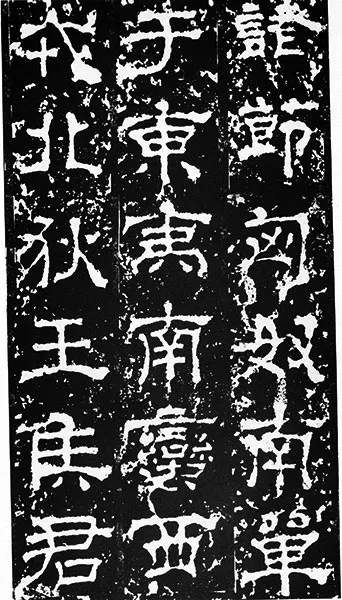 諸節匈奴南單
于東夷南蠻西
戎北狄王侯君